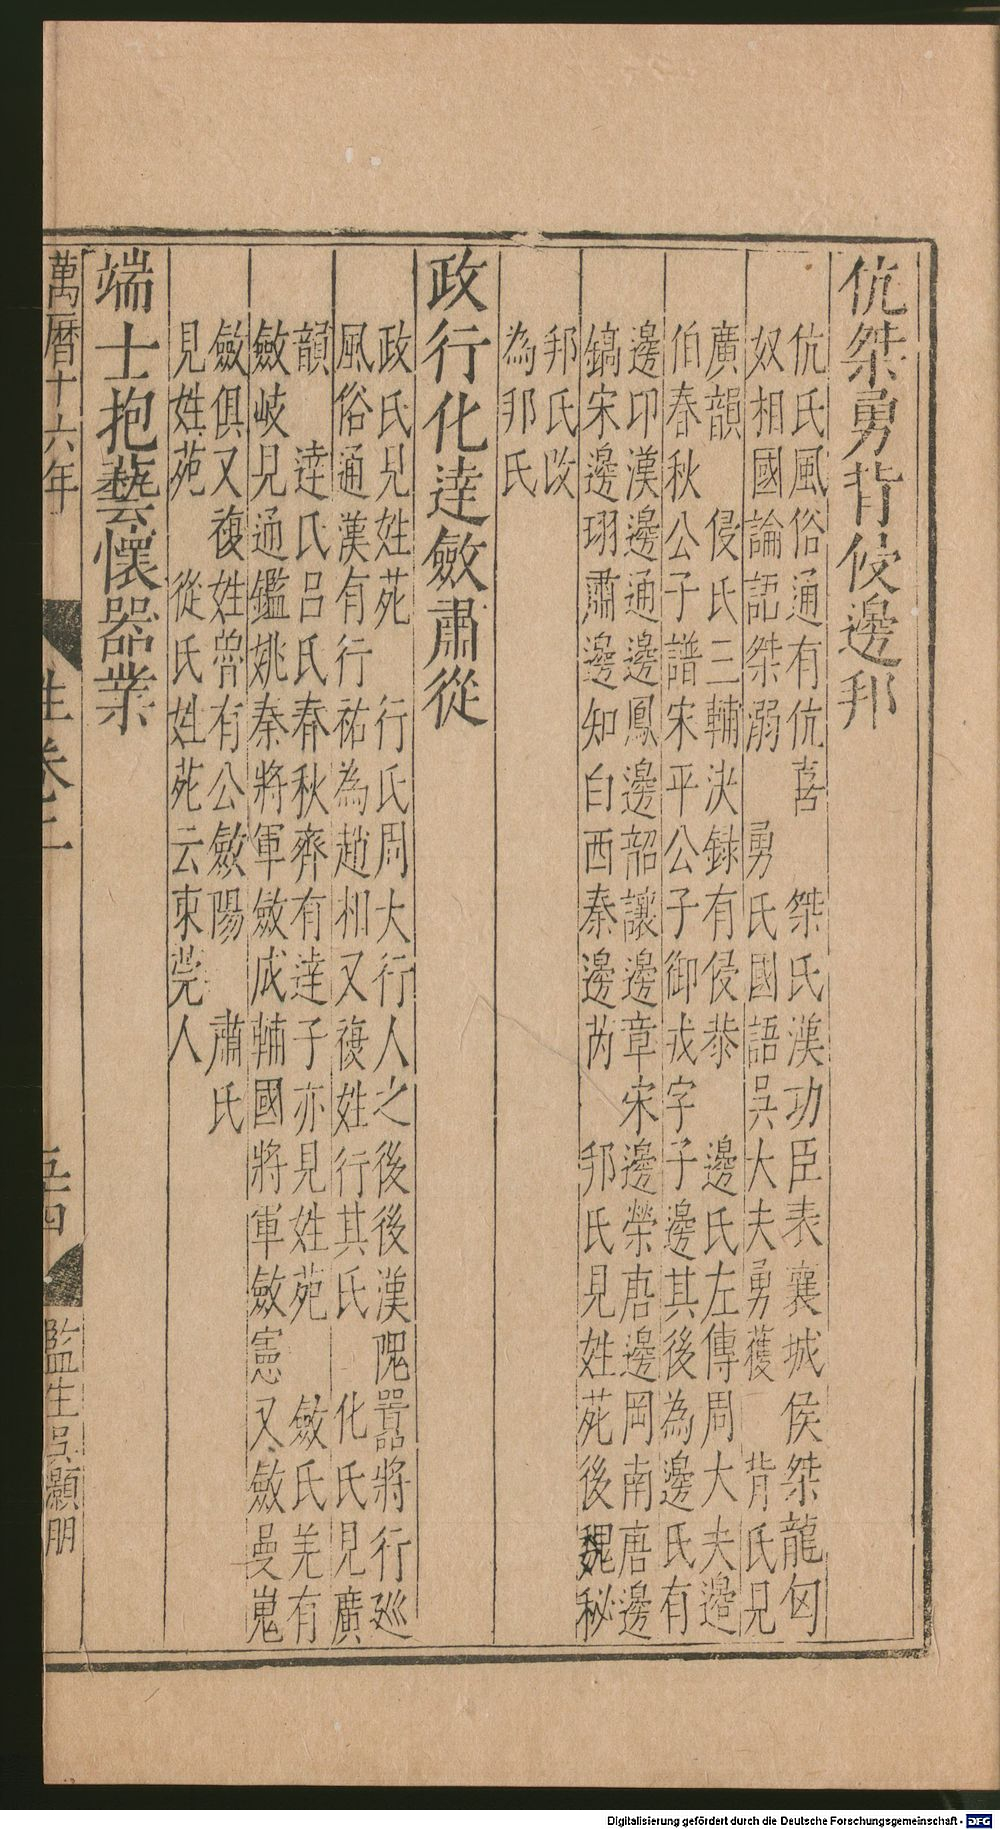 伉桀勇背侵邊邦
伉氏風俗通有伉喜　桀氏漢功臣表襄城侯桀龍匈
奴相國論語桀溺　勇氏國語吳大夫勇獲　背氏見
廣韻　侵氏三輔決録有侵恭　邊氏左傳周大夫邊
伯春秋公子譜宋平公子御戎字子邊其後為邊氏有
邊印漢邊通邊鳳邊韶讓邊章宋邊榮唐邊岡南唐邊
鎬宋邊珝肅邊知白西秦邊芮　邦氏見姓苑後魏秘
邦氏改
為邦氏
政行化逹斂肅從
政氏見姓苑　行氏周大行人之後後漢隗囂將行巡
風俗通漢有行祐為趙相又複姓行其氏　化氏見廣
韻　逹氏呂氏春秋齊有逹子亦見姓苑　斂氏羌有
斂岐見通鑑姚秦將軍斂成輔國將軍斂憲又斂曼嵬
斂俱又複姓魯有公斂陽　肅氏
見姓苑　從氏姓苑云東莞人
端士抱藝懷器業
萬曆十六年　姓卷二　五四　監生吳顥朋
Digitalisierung gefördert durch die Deutsche Forschungsgemeinschaft - DFG